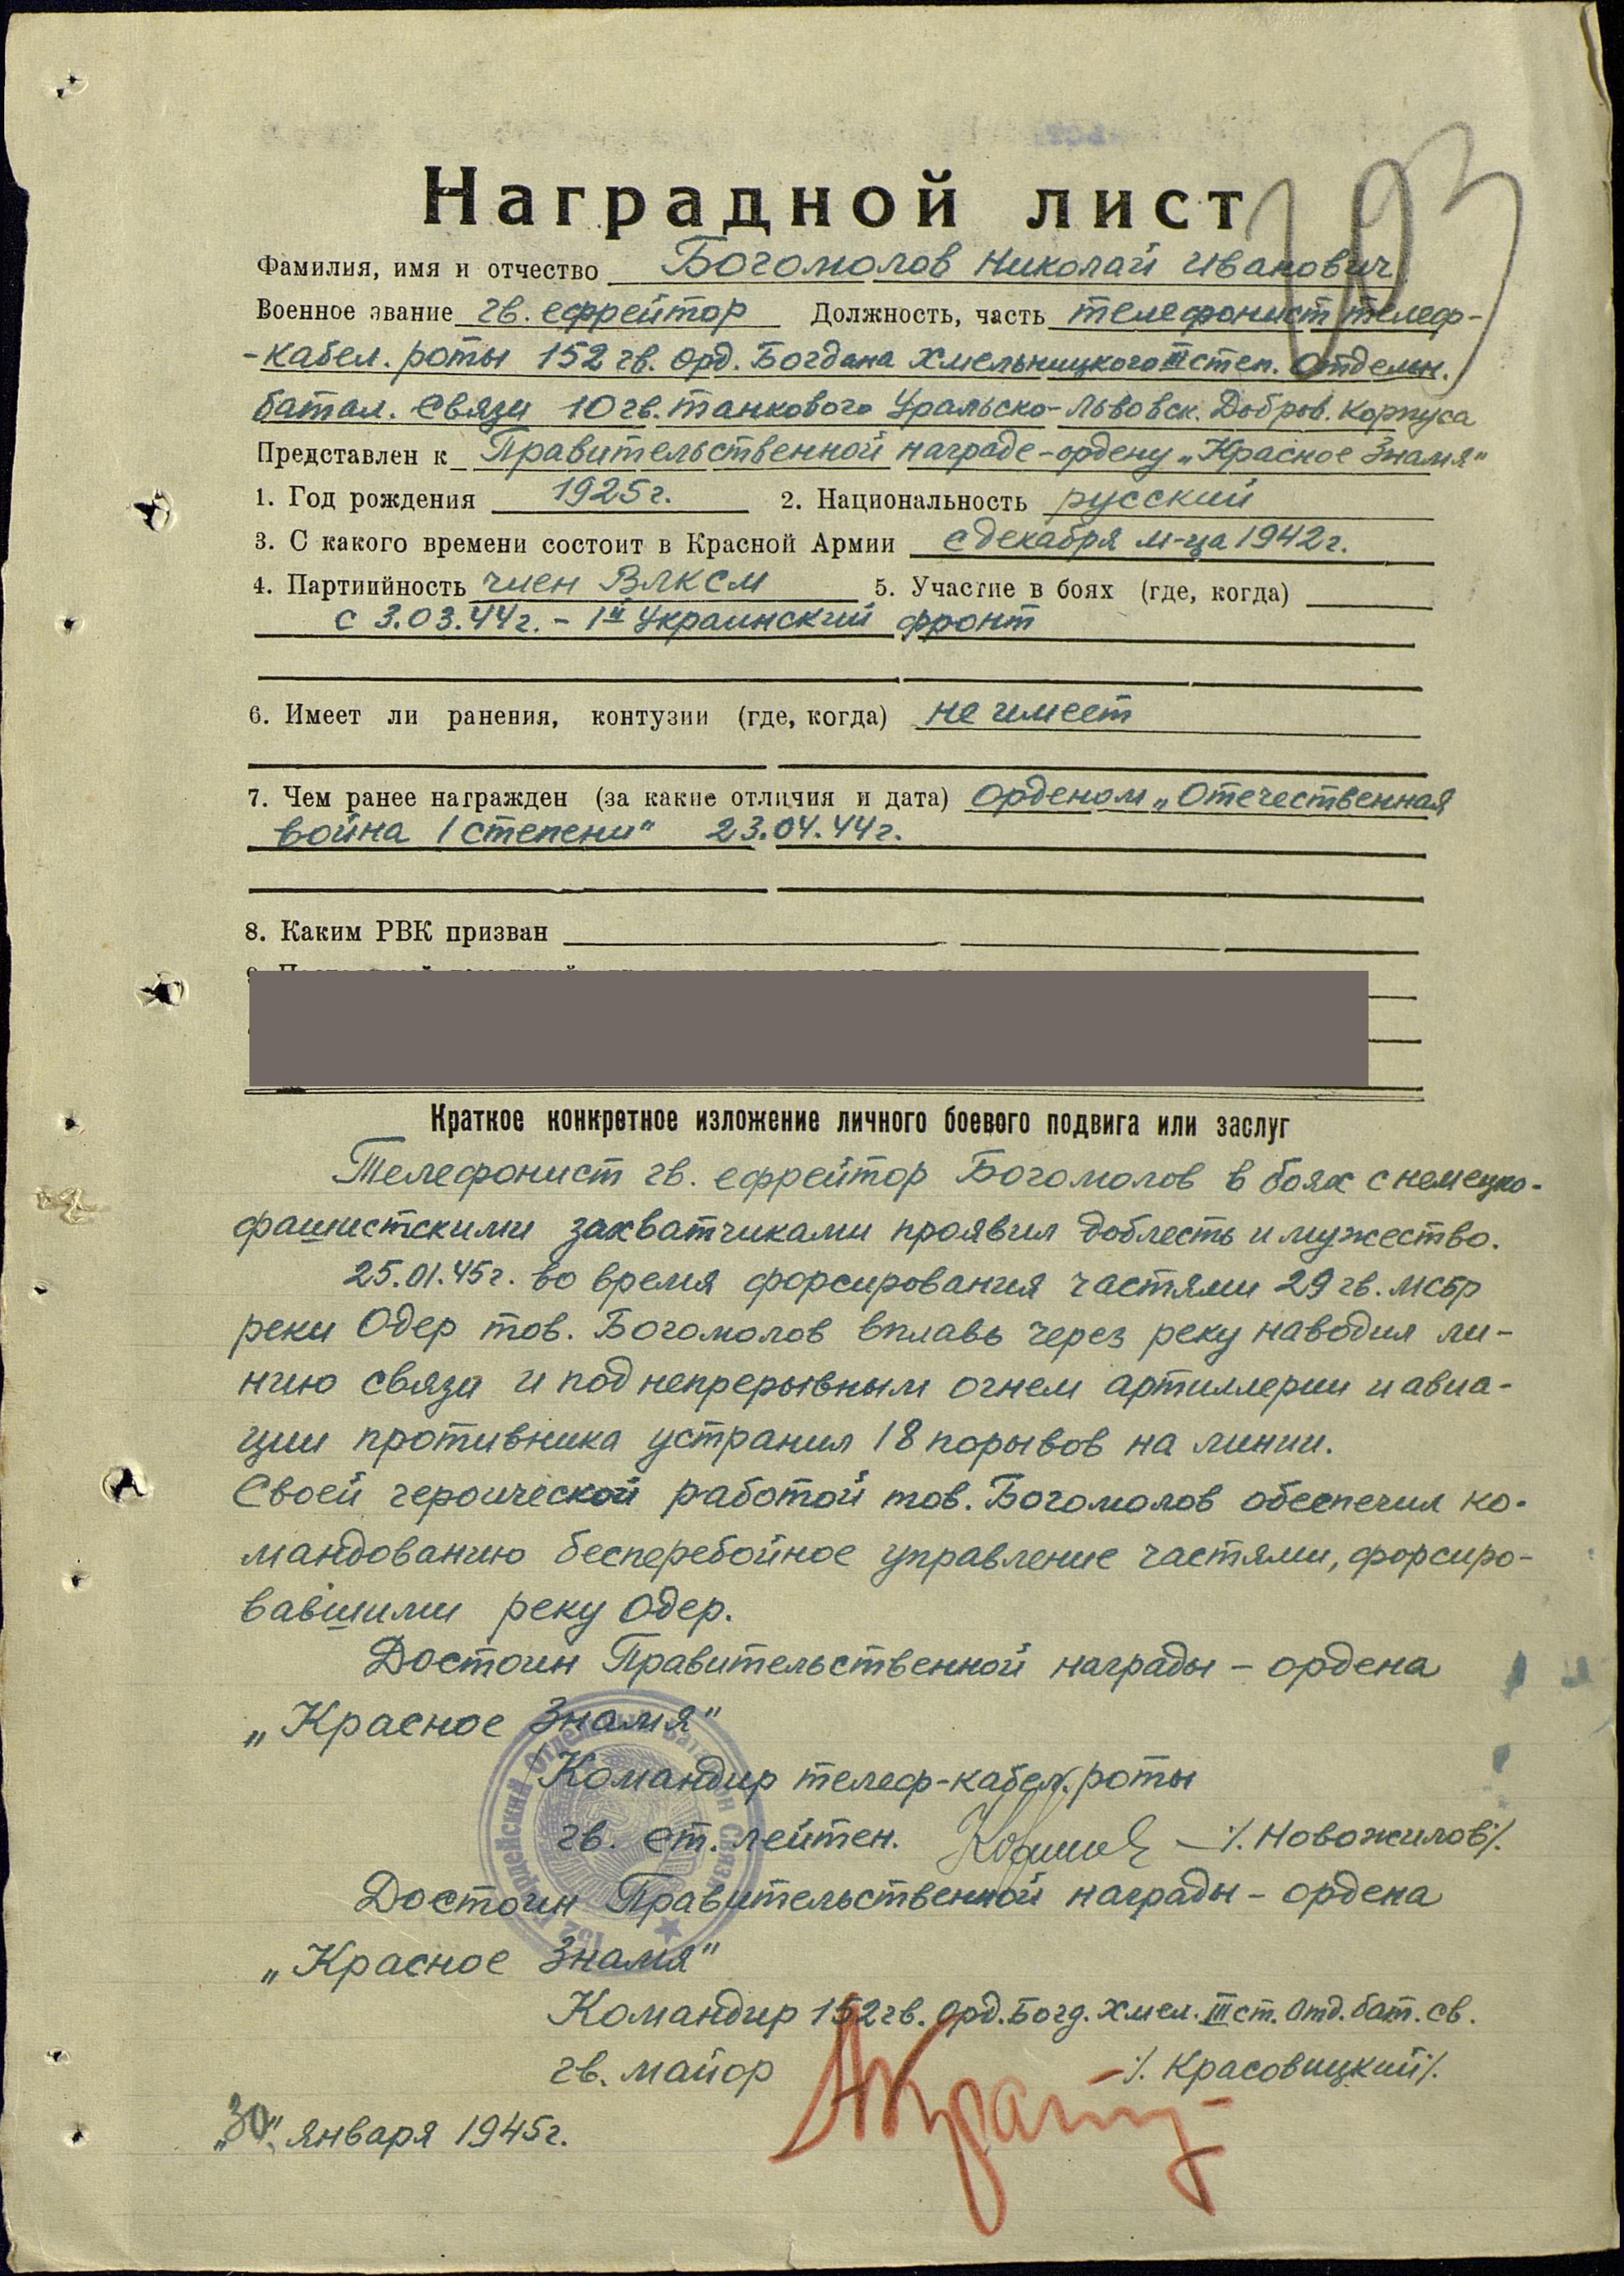 193
Наградной лист
Фамилия, имя и отчество Богомолов Николай Иванович
Военное звание гв. ефрейтор Должность, часть телефонист телеф-
-кабел. роты 152 гв. Орд. Богдана Хмельницкого III степ. Отдельн.
батал. Связи 10 гв. танкового Уральско-Львовск. Добров. Корпуса
Представлен к Правительственной награде - ордену „Красное Знамя"
1. Год рождения 1925 г. 2. Национальность русский
3. С какого времени состоит в Красной Армии с декабря м-ца 1942 г.
4. Партийность член ВЛКСМ 5. Участие в боях (где, когда)
с 3.03.44 г. - 1й Украинский фронт
6. Имеет ли ранения, контузии (где, когда) не имеет
7. Чем ранее награжден (за какие отличия и дата) орденом „Отечественная
война I степени" 23.04.44 г.
8. Каким РВК призван
Краткое конкретное изложение личного боевого подвига или заслуг
Телефонист гв. ефрейтор Богомолов в боях с немецко-
фашистскими захватчиками проявил доблесть и мужество.
25.01.45 г. во время форсирования частями 29 гв. мсбр
реки Одер тов. Богомолов вплавь через реку наводил ли-
нию связи и под непрерывным огнем артиллерии и авиа-
ции противника устранил 18 порывов на линии.
Своей героической работой тов. Богомолов обеспечил ко-
мандованию бесперебойное управление частями, форсиро-
вавшими реку Одер.
Достоин Правительственной награды - ордена
„Красное Знамя"
Командир телеф-кабел. роты
гв. ст. лейтен. /Новожилов/
Достоин Правительственной награды - ордена
„Красное Знамя"
Командир 152 гв. Орд. Богд. Хмел. III ст. Отд. бат. св.
гв. майор /Красовицкий/
„30" января 1945 г.
152 Гвардейский Отдельный Батальон Связи